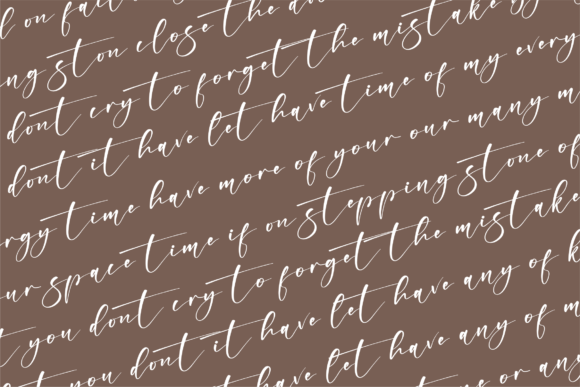 on fail
ng ston close the do
dont cry to forget the mistake
dont it have let have time of my every
rgy time have more of your our many m
ur space time if on stepping stone of
you dont cry to forget the mistake
you dont it have let have any of k
you dont it have let have any of m
or any